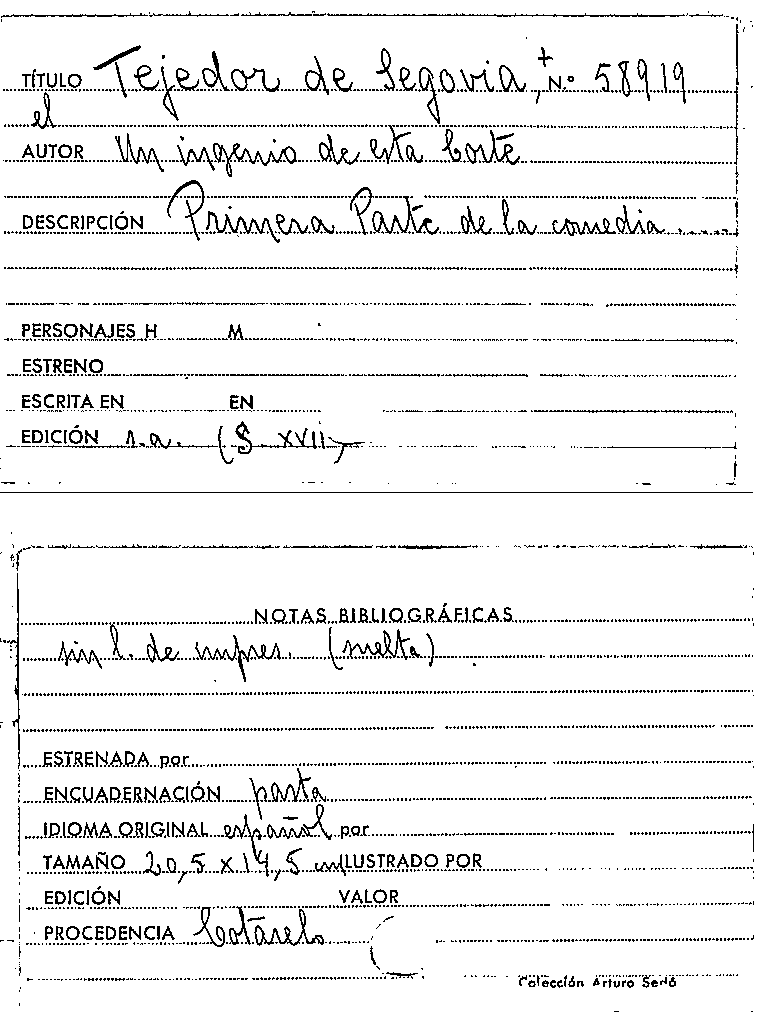 TÍTULO Tejedor de Segovia, + N.º 58919
el
AUTOR Un ingenio de esta Corte
DESCRIPCIÓN Primera Parte de la comedia.....
PERSONAJES H M
ESTRENO
ESCRITA EN EN
EDICIÓN s.a. (S. XVII)
NOTAS BIBLIOGRÁFICAS
sin l. de impres. (suelta)
ESTRENADA por
ENCUADERNACIÓN pasta
IDIOMA ORIGINAL español por
TAMAÑO 20,5 x 14,5 cm ILUSTRADO POR
EDICIÓN VALOR
PROCEDENCIA Cotarelo
Colección Arturo Sedó